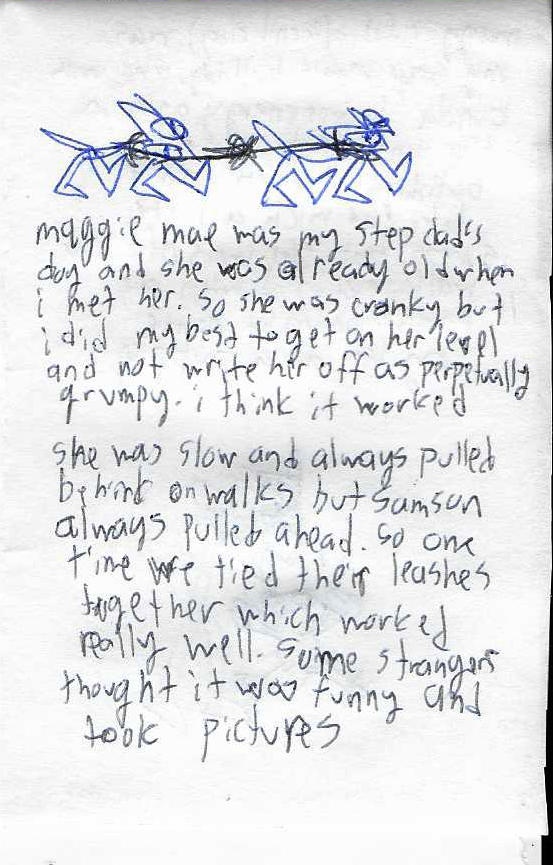 maggie mae was my step dad's
dog and she was already old when
i met her. so she was cranky but
i did my best to get on her level
and not write her off as perpetually
grumpy. i think it worked
she was slow and always pulled
behind on walks but samson
always pulled ahead. so one
time we tied their leashes
together which worked
really well. some strangers
thought it was funny and
took pictures